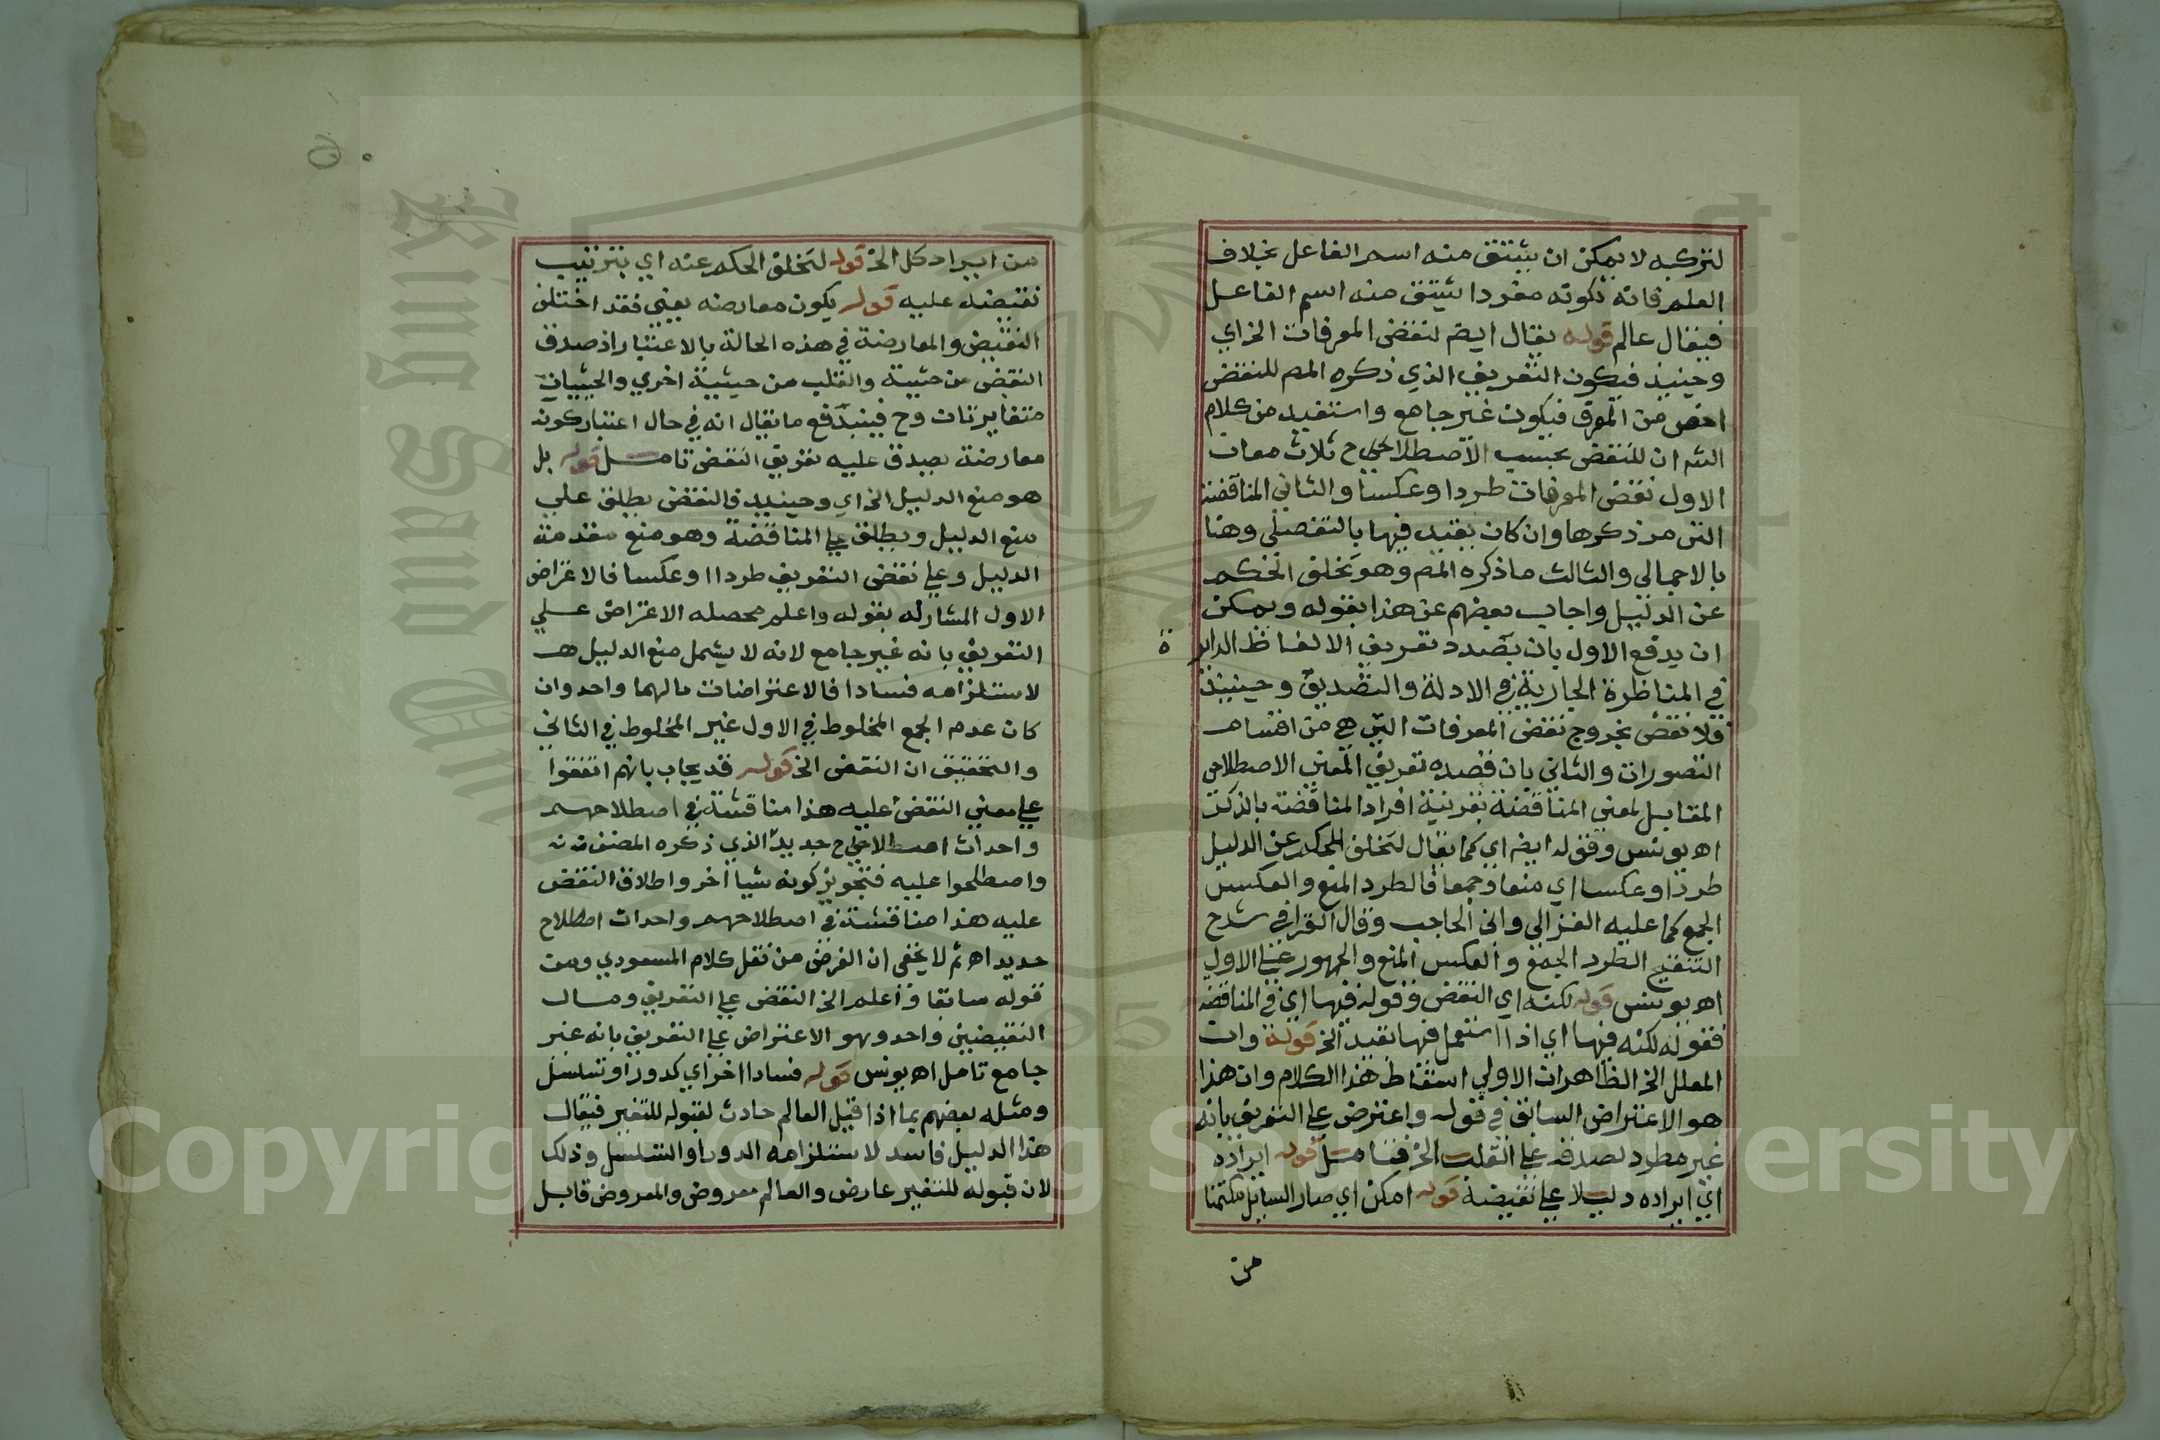 لتركبه لا يمكن ان يشتق منه اسم الفاعل بخلاف
العلم فانه لكونه مفردا يشتق منه اسم الفاعل
فيقال عالم قوله يقال ايضم لنقض المعرفات الخ اي
وحينيذ فيكون التعريف الذي ذكره المص للنقض
اخص من المعرف فيكون غير جامع واستفيد من كلام
الشم ان للنقض بحسب الاصطلاحي ح ثلاث معان
الاول نقض المعرفات طردا وعكسا والثاني المناقضة
التي مر ذكرها وان كان يقيد فيها بالتفصيلي وهنا
بالاجمالي والثالث ما ذكره المص وهو تخلف الحكم
عن الدليل واجاب بعضهم عن هذا بقوله ويمكن
ان يدفع الاول بان بصدد تعريف الالفاظ الداير
ة
في المناظرة الجارية في الادلة والتصديق وحينيذ
فلا نقض بخروج نقض المعرفات التي هي من اقسام
التصورات والثاني بان قصده تعريف المعني الاصطلاحي
المقابل لمعني المناقضة بقرينة افراد المناقضة بالذكر
اه يونس وقوله ايضم اي كما يقال لتخلف الحكم عن الدليل
طردا وعكسا اي منعا وجمعا فالطرد المنع والعكس
الجمع كما عليه الغزالي وابن الحاجب وقال القرافي في شرح
التنقيح الطرد الجمع والعكس المنع والجمهور علي الاول
اه يونس قوله لكنه اي النقض وقوله فيها اي في المناقضة
فقوله لكنه فيها اي اذا استعمل فيها تقيد الخ قوله وان
المعلل الخ الظاهر ان الاولي اسقاط هذا الكلام وان هذا
هو الاعتراض السابق في قوله واعترض علي التعريف بانه
غير مطرد لصدقه علي القلب الخ فتامل قوله ايراده
اي ايراده دليلا علي نقيضه قوله امكن اي صار السايل متمكنا
من
من ايراد كل الخ قوله لتخلف الحكم عنه اي بترتيب
نقيضه عليه قوله يكون معارضه يعني فقد اختلف
النقيض والمعارضة في هذه الحالة بالاعتبار اذ صدق
النقض من حيثية والقلب من حيثية اخري والحيثيان
متغايرتان وح فيندفع ما يقال انه في حال اعتبار كونه
معارضة يصدق عليه تعريف النقض تامل قوله بل
هو منع الدليل الخ اي وحينيذ فالنقض يطلق علي
منع الدليل ويطلق علي المناقضة وهو منع مقدمة
الدليل وعلي نقض التعريف طردا ا وعكسا فالاعتراض
الاول المشار له بقوله واعلم محصله الاعتراض علي
التعريف بانه غير جامع لانه لا يشمل منع الدليل هـ
لاستلزامه فسادا فالاعتراضات مالهما واحد وان
كان عدم الجمع المخلوط في الاول غير المخلوط في الثاني
والتحقيق ان النقض الخ قوله قد يجاب بانهم اتفقوا
علي معني النقض عليه هذا مناقشة في اصطلاحهم
واحداث اصطلاحي ح جديد الذي ذكره المصنف
واصطلحوا عليه فتجويز كونه شيا اخر واطلاق النقض
عليه هذا مناقشة في اصطلاحهم واحداث اصطلاح
جديد اه ثم لا يخفي ان الغرض من نقل كلام المسعودي ومن
قوله سابقا واعلم الخ النقض علي التعريف ومال
النقيضين واحد وهو الاعتراض علي التعريف بانه غير
جامع تامل اه يونس قوله فسادا اخر اي كدور او تسلسل
ومثله بعضهم بما اذا قيل العالم حادث لقبوله للتغير فيقال
هذا الدليل فاسد لاستلزامه الدور او التسلسل وذلك
لان قبوله للتغير عارض والعالم معروض والمعروض قابل
Copyright © King Saud University
King Saud University
1957